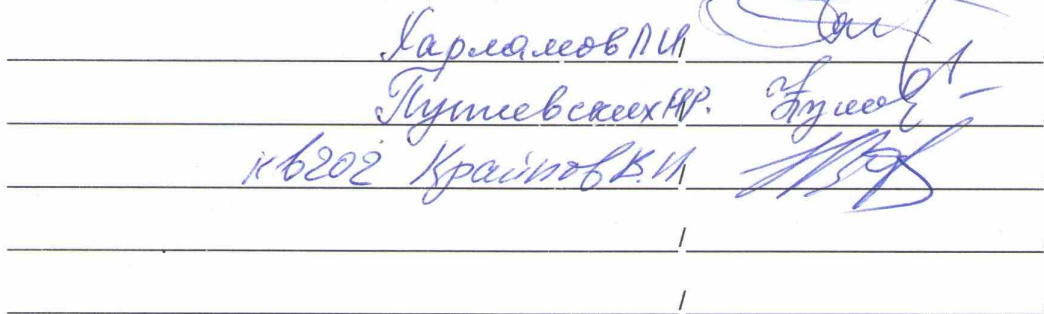 Харламов П.И /
Путевских Н.Р. /
кв202 Крайнов В.И /
/
/